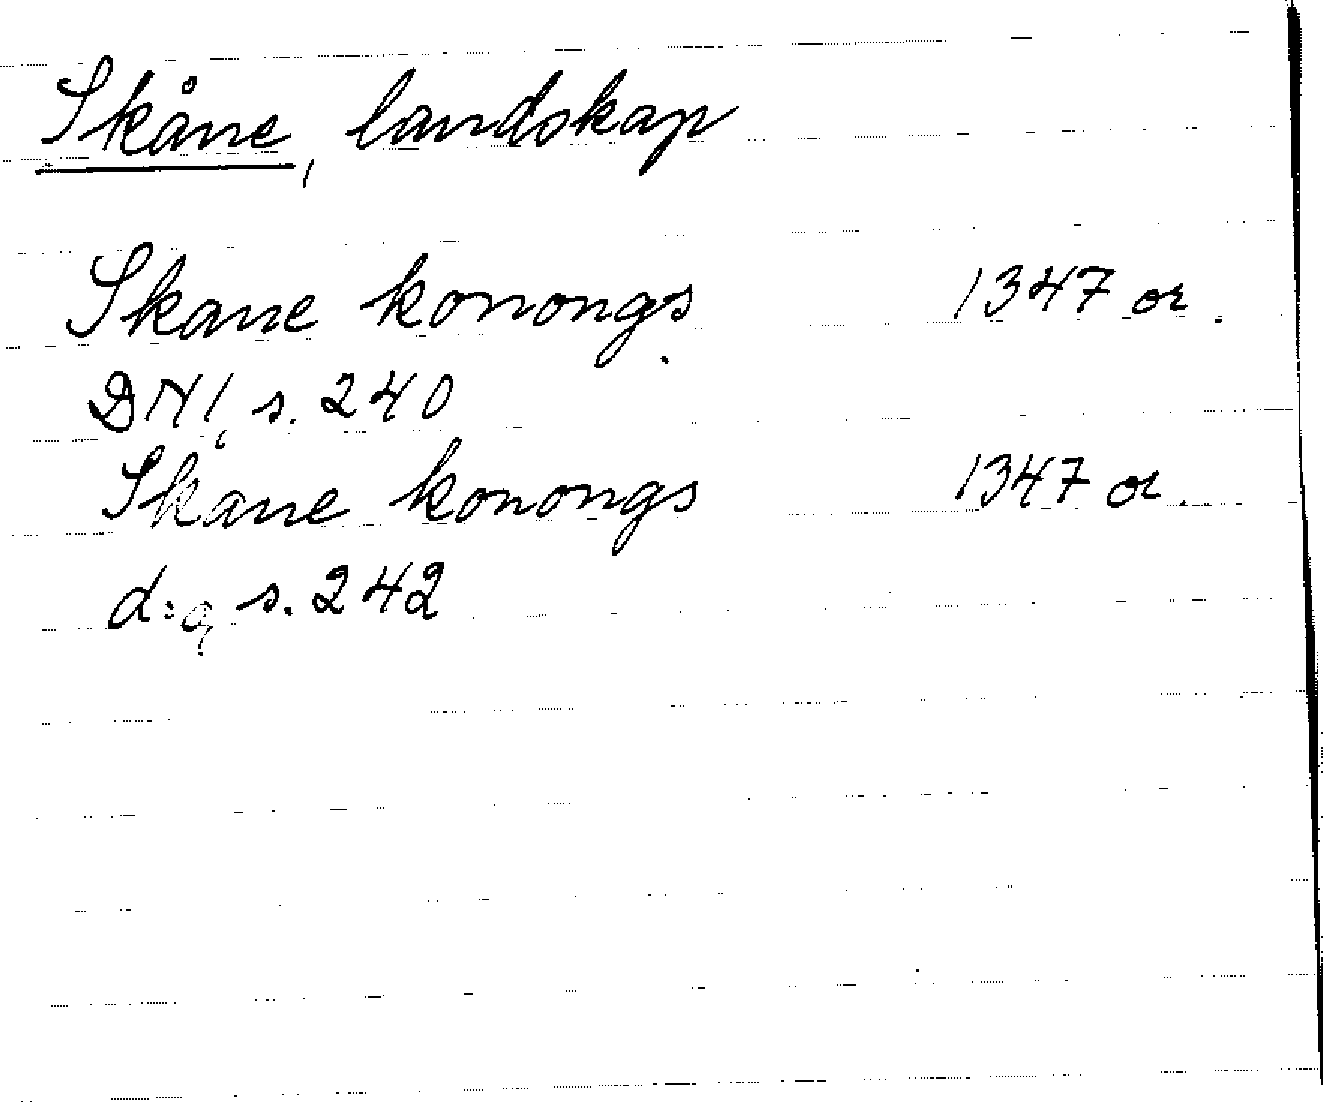 Skåne, landskap
Skane konongs 1347 or.
DN 1, s. 240
Skane konongs 1347 or.
d:o, s. 242